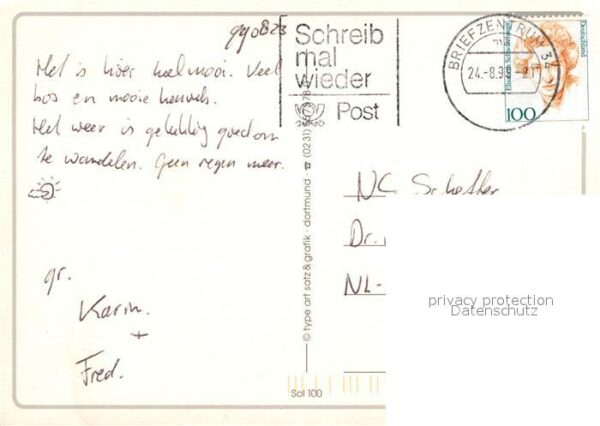 Het is hier heel mooi. Veel
bos en mooie heuvels.
Het weer is gelukkig goed om
te wandelen. Geen regen meer.
gr.
Karin
+
Fred.
Schreib
mal
wieder
Post
BRIEFZENTRUM 34
24.-8.9
-21
Deutschland
100
© type art satz & grafik · dortmund · ☎ (0231)
NC
Dr.
NL-
privacy protection
Datenschutz
Sol 100